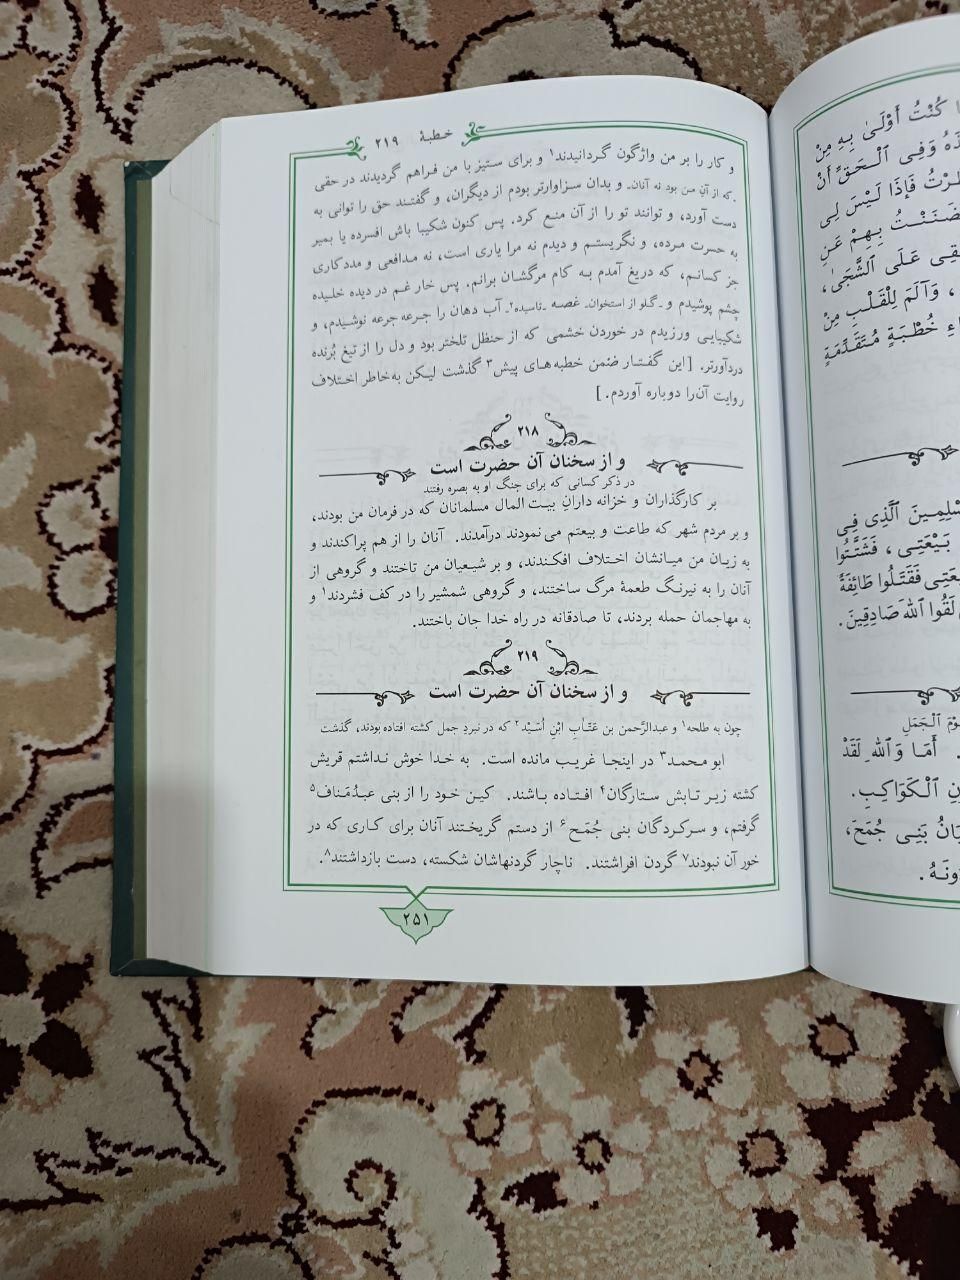 خطبهٔ ۲۱۹
و کار را بر من واژگون گردانیدند۱ و برای ستیز با من فراهم گردیدند در حقی
ـ که از آنِ من بود نه آنان ـ و بدان سزاوارتر بودم از دیگران، و گفتند حق را توانی به
دست آورد، و توانند تو را از آن منع کرد. پس کنون شکیبا باش افسرده یا بمیر
به حسرت مرده، و نگریستم و دیدم نه مرا یاری است، نه مدافعی و مددکاری
جز کسانم، که دریغ آمدم به کام مرگشان برانم. پس خار غم در دیده خلیده
چشم پوشیدم و ـ گلو از استخوان غصه ـ تاسیده۲ ـ آب دهان را جرعه جرعه نوشیدم، و
شکیبایی ورزیدم در خوردن خشمی که از حنظل تلختر بود و دل را از تیغ بُرنده
دردآورتر. [این گفتار ضمن خطبه‌های پیش۳ گذشت لیکن به‌خاطر اختلاف
روایت آن‌را دوباره آوردم.]
۲۱۸
و از سخنان آن حضرت است
در ذکر کسانی که برای جنگ او به بصره رفتند
بر کارگذاران و خزانه دارانِ بیت المال مسلمانان که در فرمان من بودند،
و بر مردم شهر که طاعت و بیعتم می نمودند درآمدند. آنان را از هم پراکندند و
به زیان من میانشان اختلاف افکندند، و بر شیعیان من تاختند و گروهی از
آنان را به نیرنگ طعمهٔ مرگ ساختند، و گروهی شمشیر را در کف فشردند۱ و
به مهاجمان حمله بردند، تا صادقانه در راه خدا جان باختند.
۲۱۹
و از سخنان آن حضرت است
چون به طلحه۱ و عبدالرّحمن بن عَتّاب ابْنِ اُسَیْد۲ که در نبردِ جمل کشته افتاده بودند، گذشت
ابو محمد۳ در اینجا غریب مانده است. به خدا خوش نداشتم قریش
کشته زیر تابش ستارگان۴ افتاده باشند. کین خود را از بنی عبدُمَناف۵
گرفتم، و سرکردگان بنی جُمَح۶ از دستم گریختند آنان برای کاری که در
خورِ آن نبودند۷ گردن افراشتند. ناچار گردنهاشان شکسته، دست بازداشتند۸.
۲۵۱
كُنْتُ أَوْلَىٰ بِهِ مِنْ
وَفِي الْحَقِّ أَنْ
فَإِذَا لَيْسَ لِي
بِهِمْ عَنِ
عَلَى الشَّجَىٰ،
، وَآلَمَ لِلْقَلْبِ مِنْ
خُطْبَةٍ مُتَقَدِّمَةٍ
الَّذِي فِي
بَيْعَتِي، فَشَتَّتُوا
فَقَتَلُوا طَائِفَةً
لَقُوا اللهَ صَادِقِينَ.
الْجَمَلِ
أَمَا وَاللهِ لَقَدْ
الْكَوَاكِبِ.
بَنِي جُمَحَ،